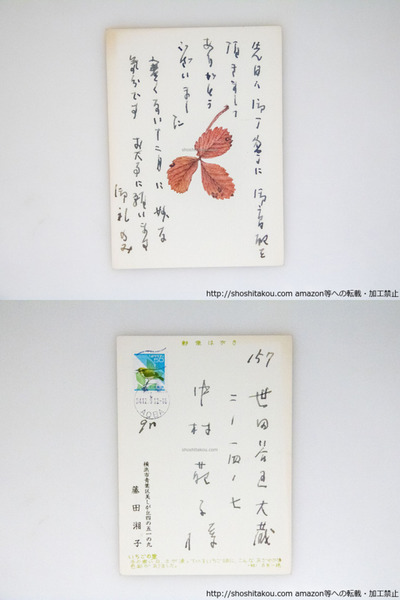 先日は御丁寧に御
頂きまして
ありがとう
ございました
寒くない十二月に妙な
気分です お大事に願います
御礼のみ
shoshitakou.com
http://shoshitakou.com amazon等への転載・加工禁止
郵便はやき
157
世田谷区大蔵
二ー一四ー七
中村苑子様
50
AOBA
shoshitakou.com
横浜市青葉区美しが丘四の五一の九
藤田湘子
いちごの葉
http://shoshitakou.com amazon等への転載・加工禁止